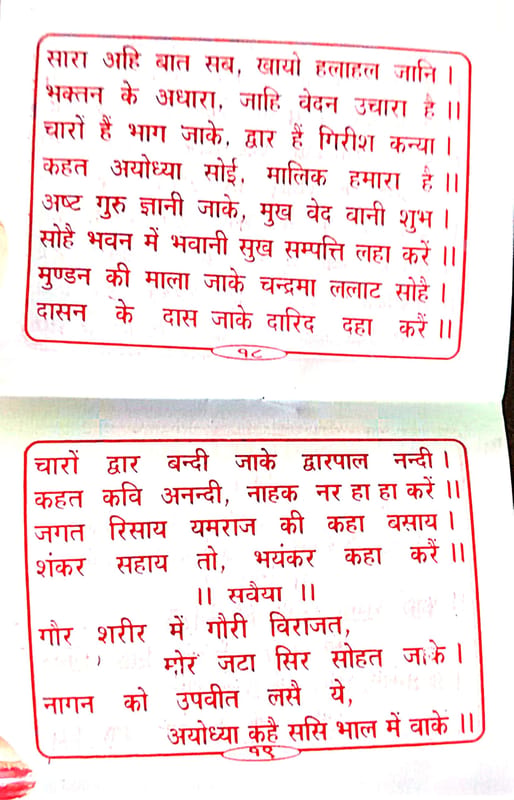 सारा अहि बात सब, खायो हलाहल जानि ।
भक्तन के अधारा, जाहि वेदन उचारा है ।।
चारों हैं भाग जाके, द्वार हैं गिरीश कन्या ।
कहत अयोध्या सोई, मालिक हमारा है ।।
अष्ट गुरु ज्ञानी जाके, मुख वेद वानी शुभ ।
सोहै भवन में भवानी सुख सम्पत्ति लहा करें ।।
मुण्डन की माला जाके चन्द्रमा ललाट सोहै ।
दासन के दास जाके दारिद दहा करैं ।।
१८
चारों द्वार बन्दी जाके द्वारपाल नन्दी ।
कहत कवि अनन्दी, नाहक नर हा हा करें ।।
जगत रिसाय यमराज की कहा बसाय ।
शंकर सहाय तो, भयंकर कहा करैं ।।
।। सवैया ।।
गौर शरीर में गौरी विराजत,
मोर जटा सिर सोहत जाके ।
नागन को उपवीत लसै ये,
अयोध्या कहै ससि भाल में वाके ।।
१९